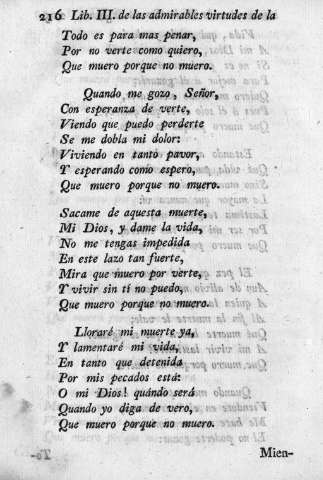 216 Lib. III. de las admirables virtudes de la
Todo es para mas penar,
Por no verte como quiero,
Que muero porque no muero.
Quando me gozo, Señor,
Con esperanza de verte,
Viendo que puedo perderte
Se me dobla mi dolor:
Viviendo en tanto pavor,
Y esperando como espero,
Que muero porque no muero.
Sacame de aquesta muerte,
Mi Dios, y dame la vida,
No me tengas impedida
En este lazo tan fuerte,
Mira que muero por verte,
Y vivir sin tí no puedo,
Que muero porque no muero.
Lloraré mi muerte ya,
Y lamentaré mi vida,
En tanto que detenida
Por mis pecados está:
O mi Dios! quándo será
Quando yo diga de vero,
Que muero porque no muero.
Mien-